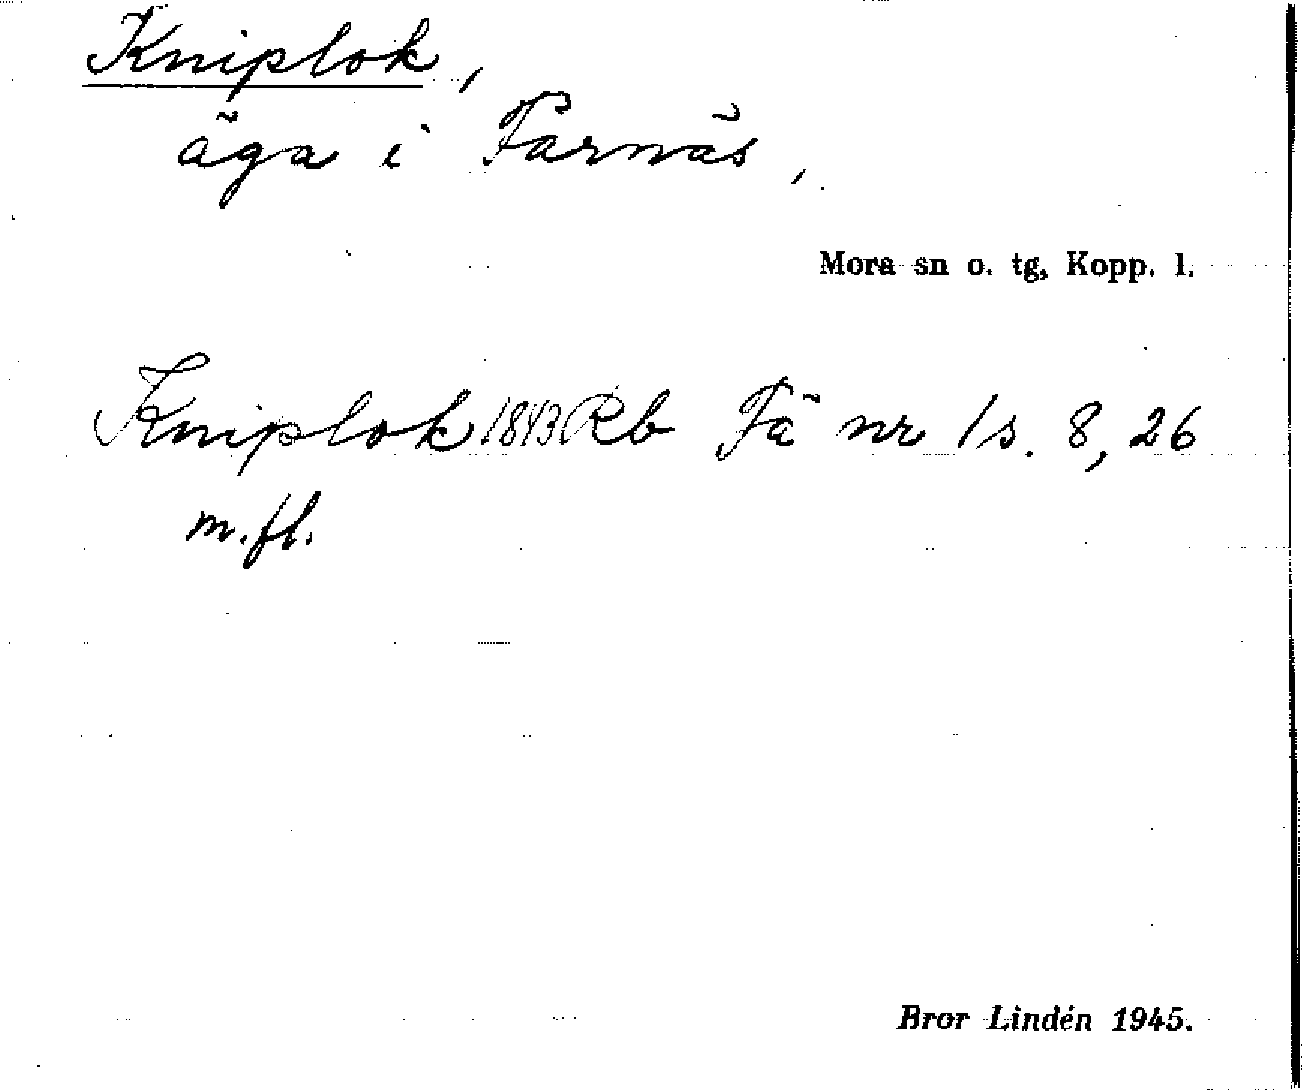 Kniplok,
äga i Färnäs,
Mora sn o. tg, Kopp. l.
Kniplok 1843 Rb Fä nr 1 s. 8, 26
m. fl.
Bror Lindén 1945.